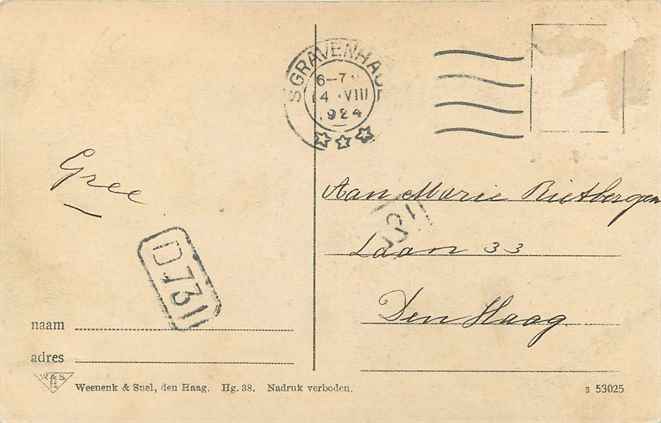 'SGRAVENHAGE
6-7
4.VIII
1924
Gree
Aan Marie Rietbergen
Laan 33
Den Haag
D731
naam
adres
Weenenk & Snel, den Haag. Hg. 38. Nadruk verboden.
s 53025